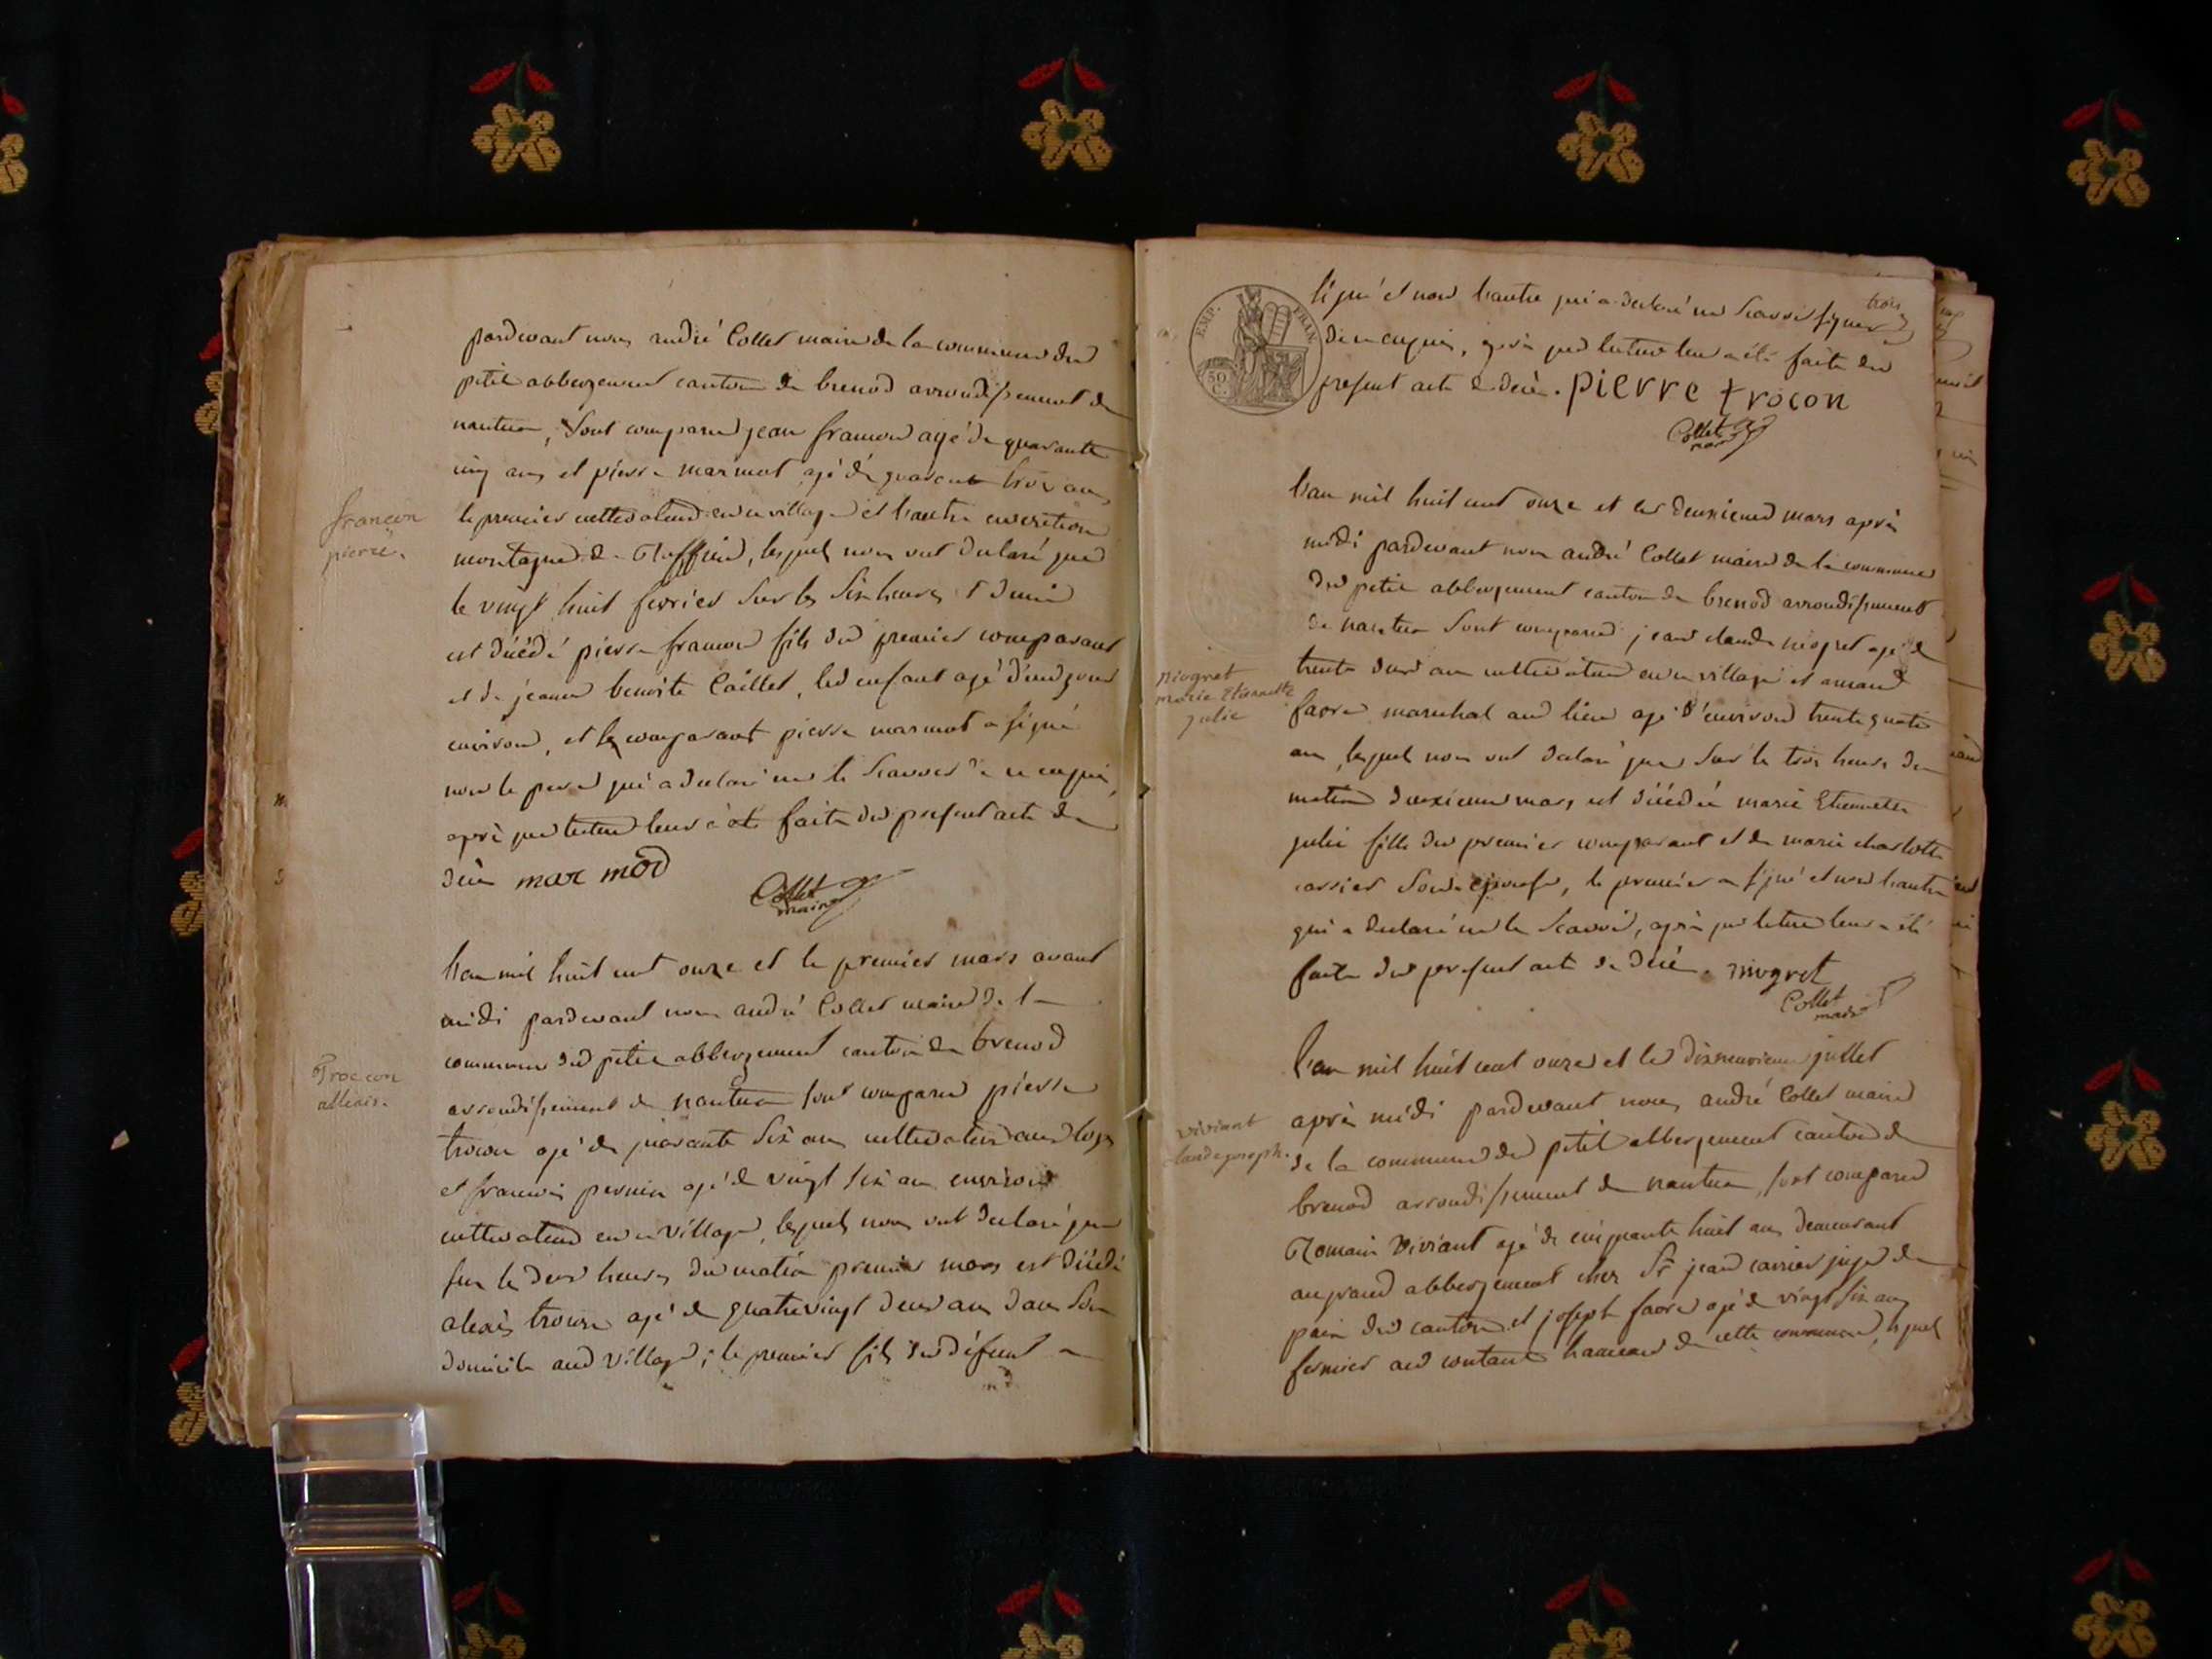 pardevant nous andré Collet maire de la commune du
petit abbergement canton de brenod arrondissement de
nantua, sont comparu jean francon agé de quarante
cinq ans et pierre marmot agé de quarante trois ans
françon
pierre.
le premier cultivateur en ce village et l'autre
montagne de, lesquels nous ont declaré que
le vingt huit fevrier sur les six heures et demie
est décédé pierre francon fils du premier comparant
et de jeanne benoite Caillet, led enfant agé d'un jour
environ, et le comparant pierre marmot a signé
non le pere qui a declaré ne le scavoir de ce enquis,
après que lecture leur a été faite du present acte de
décès mar mod
Collet
maire
l'an mil huit cent onze et le premier mars avant
midi pardevant nous andré Collet maire de la
commune du petit abbergement canton de brenod
Troccon
allexis.
arrondissement de nantua sont comparu pierre
trocon agé de quarante six ans cultivateur aud lieu
et francois pernin agé de vingt six ans environ
cultivateur en ce village, lesquels nous ont declaré que
sur les deux heures du matin premier mars est décédé
alexis trocon agé de quatrevingt deux ans dans son
domicile aud village; le premier fils du défunt a
EMP. FRAN.
50
C.
signé et non l'autre qui a declaré ne scavoir signer
trois
de ce enquis, après que lecture leur a été faite du
present acte de décès. pierre trocon
Collet
maire
l'an mil huit cent onze et le deuxieme mars après
midi pardevant nous andré Collet maire de la commune
du petit abbergement canton de brenod arrondissement
de nantua sont comparu jean claude niogret agé de
niogret
marie Etiennette
julie
trente deux ans cultivateur en ce village et amand
favre marechal aud lieu agé d'environ trente quatre
ans, lesquels nous ont declaré que sur les trois heures du
matin deuxieme mars est décédée marie Etiennette
julie fille du premier comparant et de marie charlotte
carrier son epouse, le premier a signé et non l'autre
qui a declaré ne le scavoir, après que lecture leur a été
faite du present acte de décès. niogret
Collet
maire
l'an mil huit cent onze et le dixneuvieme juillet
après midi pardevant nous andré Collet maire
viviant
claude joseph.
de la commune du petit abbergement canton de
brenod arrondissement de nantua, sont comparu
Romain viviant agé de cinquante huit ans demeurant
au grand abbergement chez Sr jean carrier juge de
paix du canton et joseph favre agé de vingt six ans
fermier aud contant hameau de cette commune, lesquels